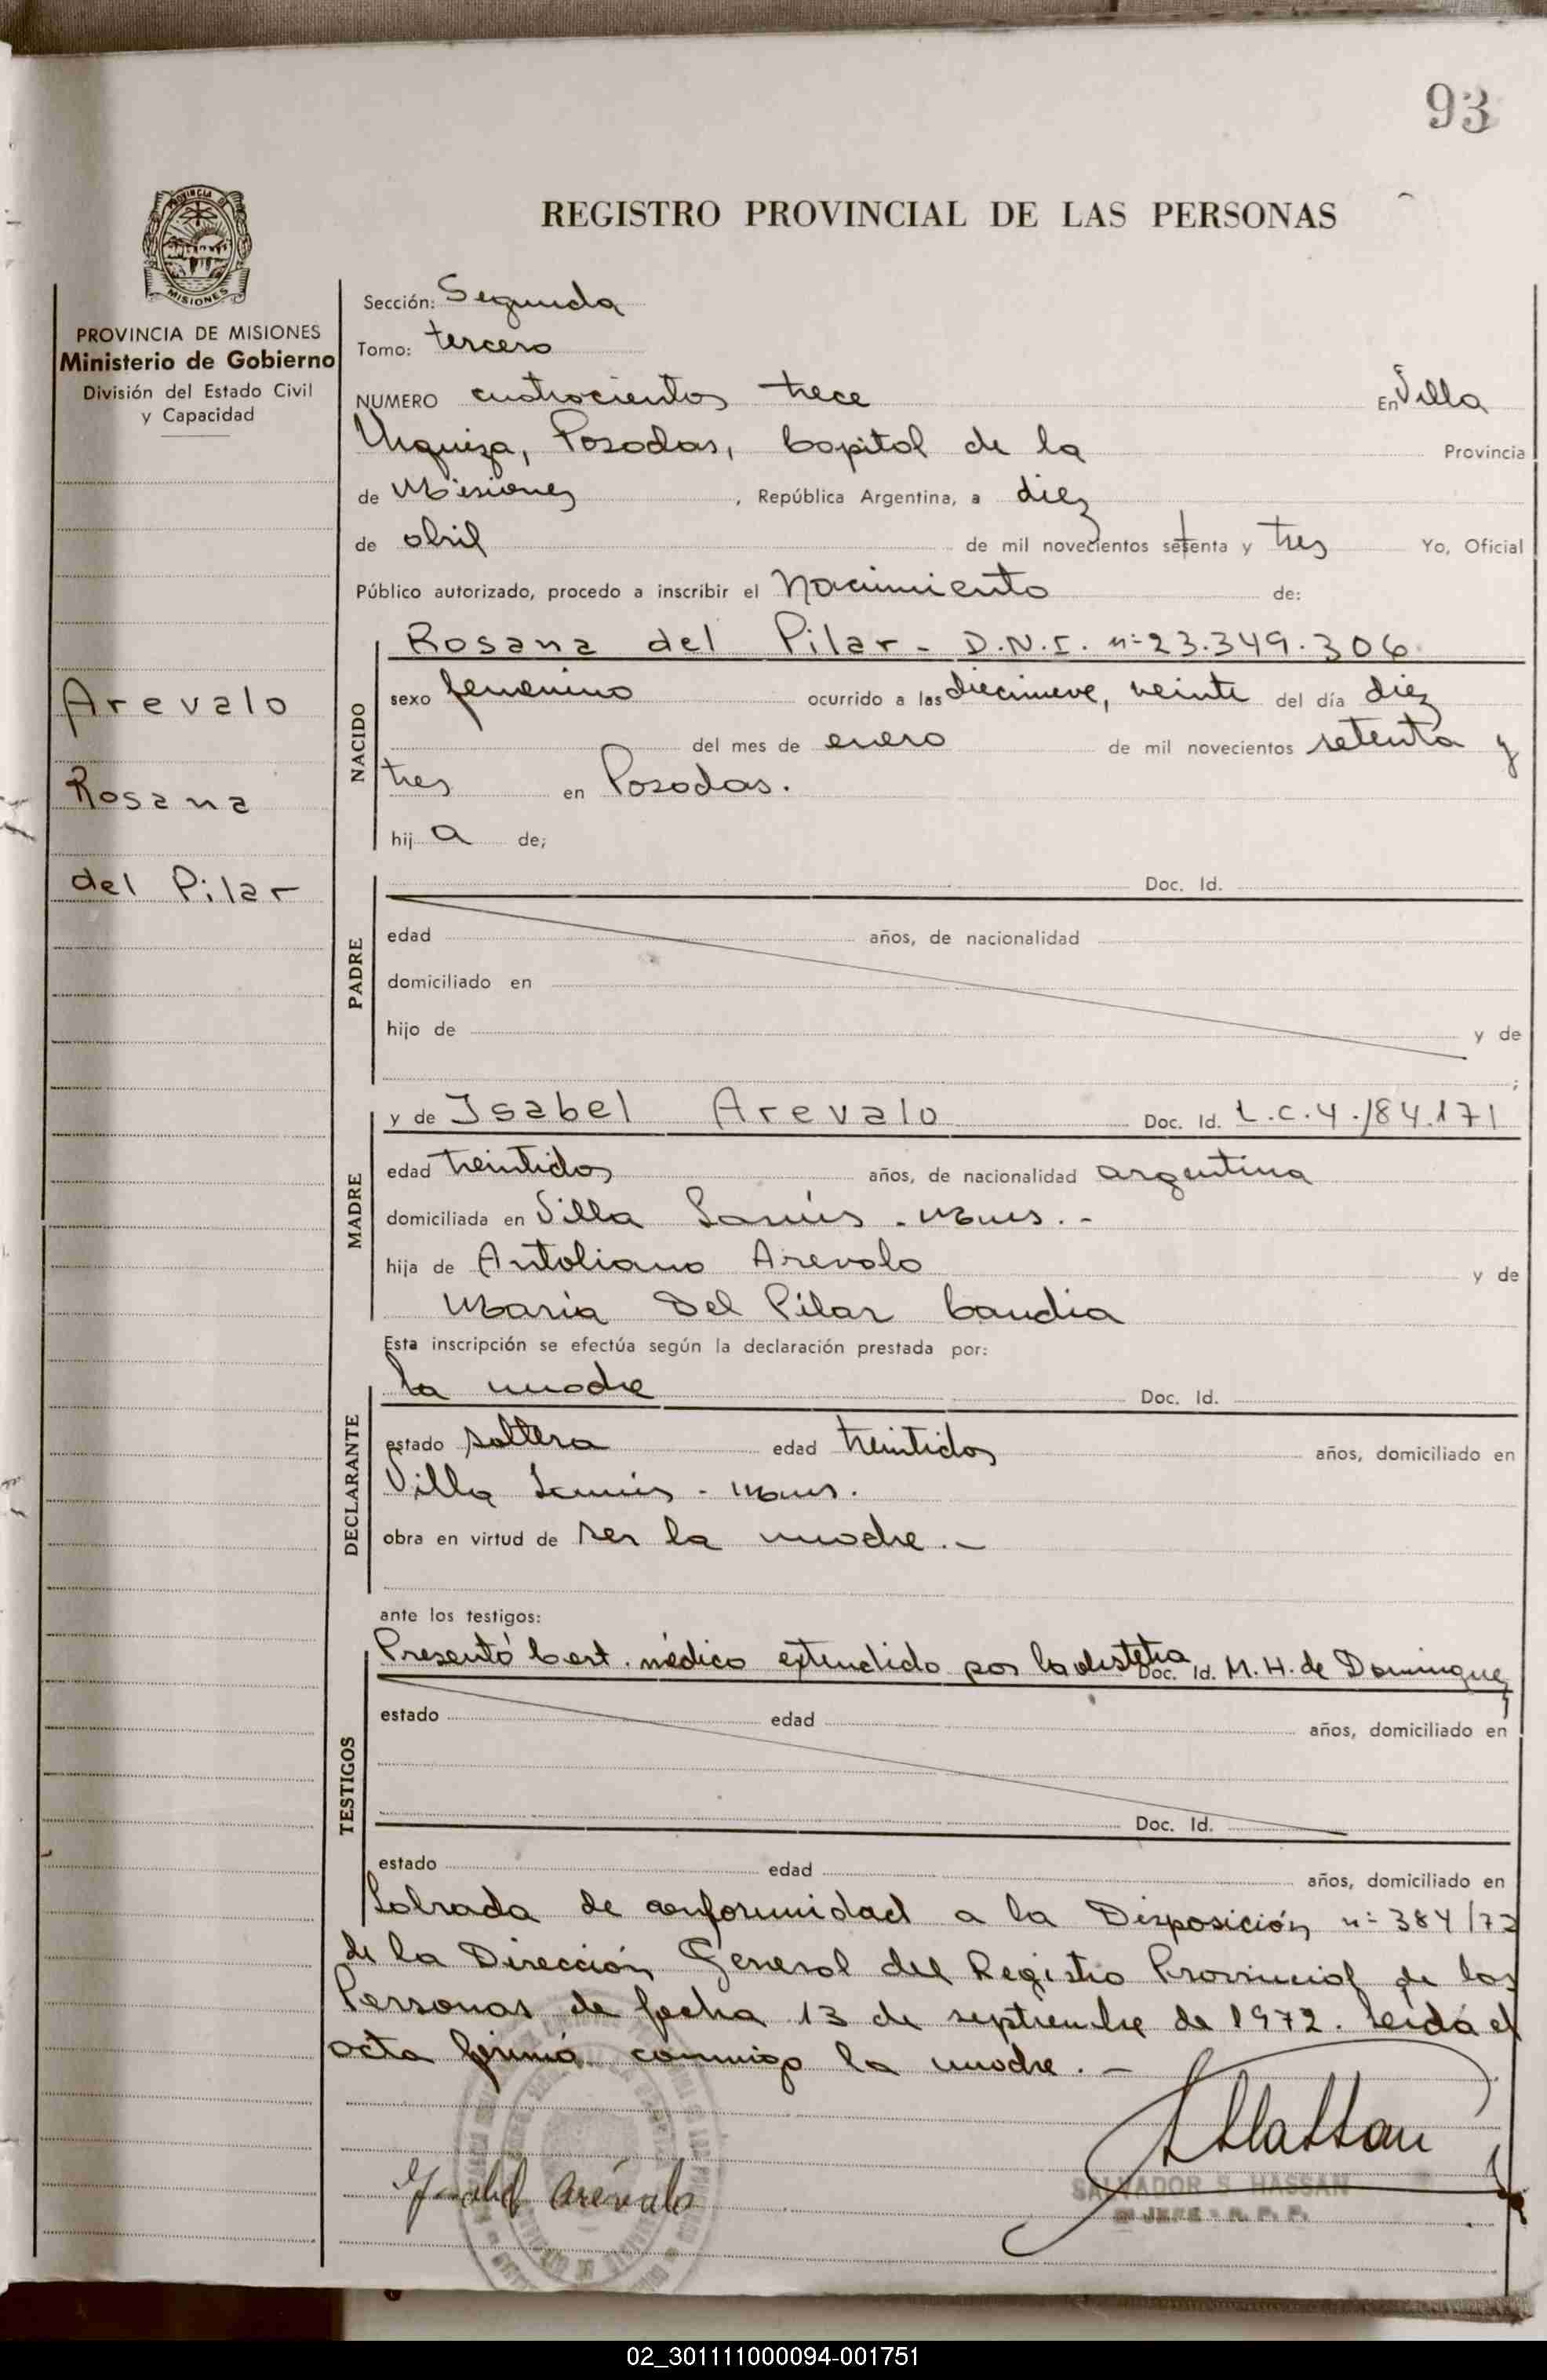 93
REGISTRO PROVINCIAL DE LAS PERSONAS
PROVINCIA DE MISIONES
Ministerio de Gobierno
División del Estado Civil
y Capacidad
Arevalo
Rosana
del Pilar
Sección: Segunda
Tomo: tercero
NUMERO cuatrocientos trece En Villa
Urquiza, Posadas, Capital de la Provincia
de Misiones, República Argentina, a diez
de abril de mil novecientos setenta y tres Yo, Oficial
Público autorizado, procedo a inscribir el Nacimiento de:
NACIDO
Rosana del Pilar - D.N.I. nº 23.349.306
sexo femenino ocurrido a las diecinueve, veinte del día diez
del mes de enero de mil novecientos setenta y
tres en Posadas.
hij a de;
PADRE
Doc. Id.
edad años, de nacionalidad
domiciliado en
hijo de y de
;
MADRE
y de Isabel Arevalo Doc. Id. L.C.4.184.171
edad treintidos años, de nacionalidad argentina
domiciliada en Villa Lanús - Mnes. -
hija de Antoliano Arevalo y de
Maria Del Pilar Candia
Esta inscripción se efectúa según la declaración prestada por:
DECLARANTE
la madre Doc. Id.
estado soltera edad treintidos años, domiciliado en
Villa Lanús - Mnes.
obra en virtud de ser la madre. -
ante los testigos:
TESTIGOS
Presentó Cert. médico extendido por la obstetra Doc. Id. M. H. de Dominguez
estado edad años, domiciliado en
Doc. Id.
estado edad años, domiciliado en
Labrada de conformidad a la Disposición nº 384/72
de la Dirección General del Registro Provincial de las
Personas de fecha 13 de septiembre de 1972. Leída el
acta firmó conmigo la madre. -
Isabel Arévalo
SALVADOR S. HASSAN
JEFE - R. P. P.
02_301111000094-001751